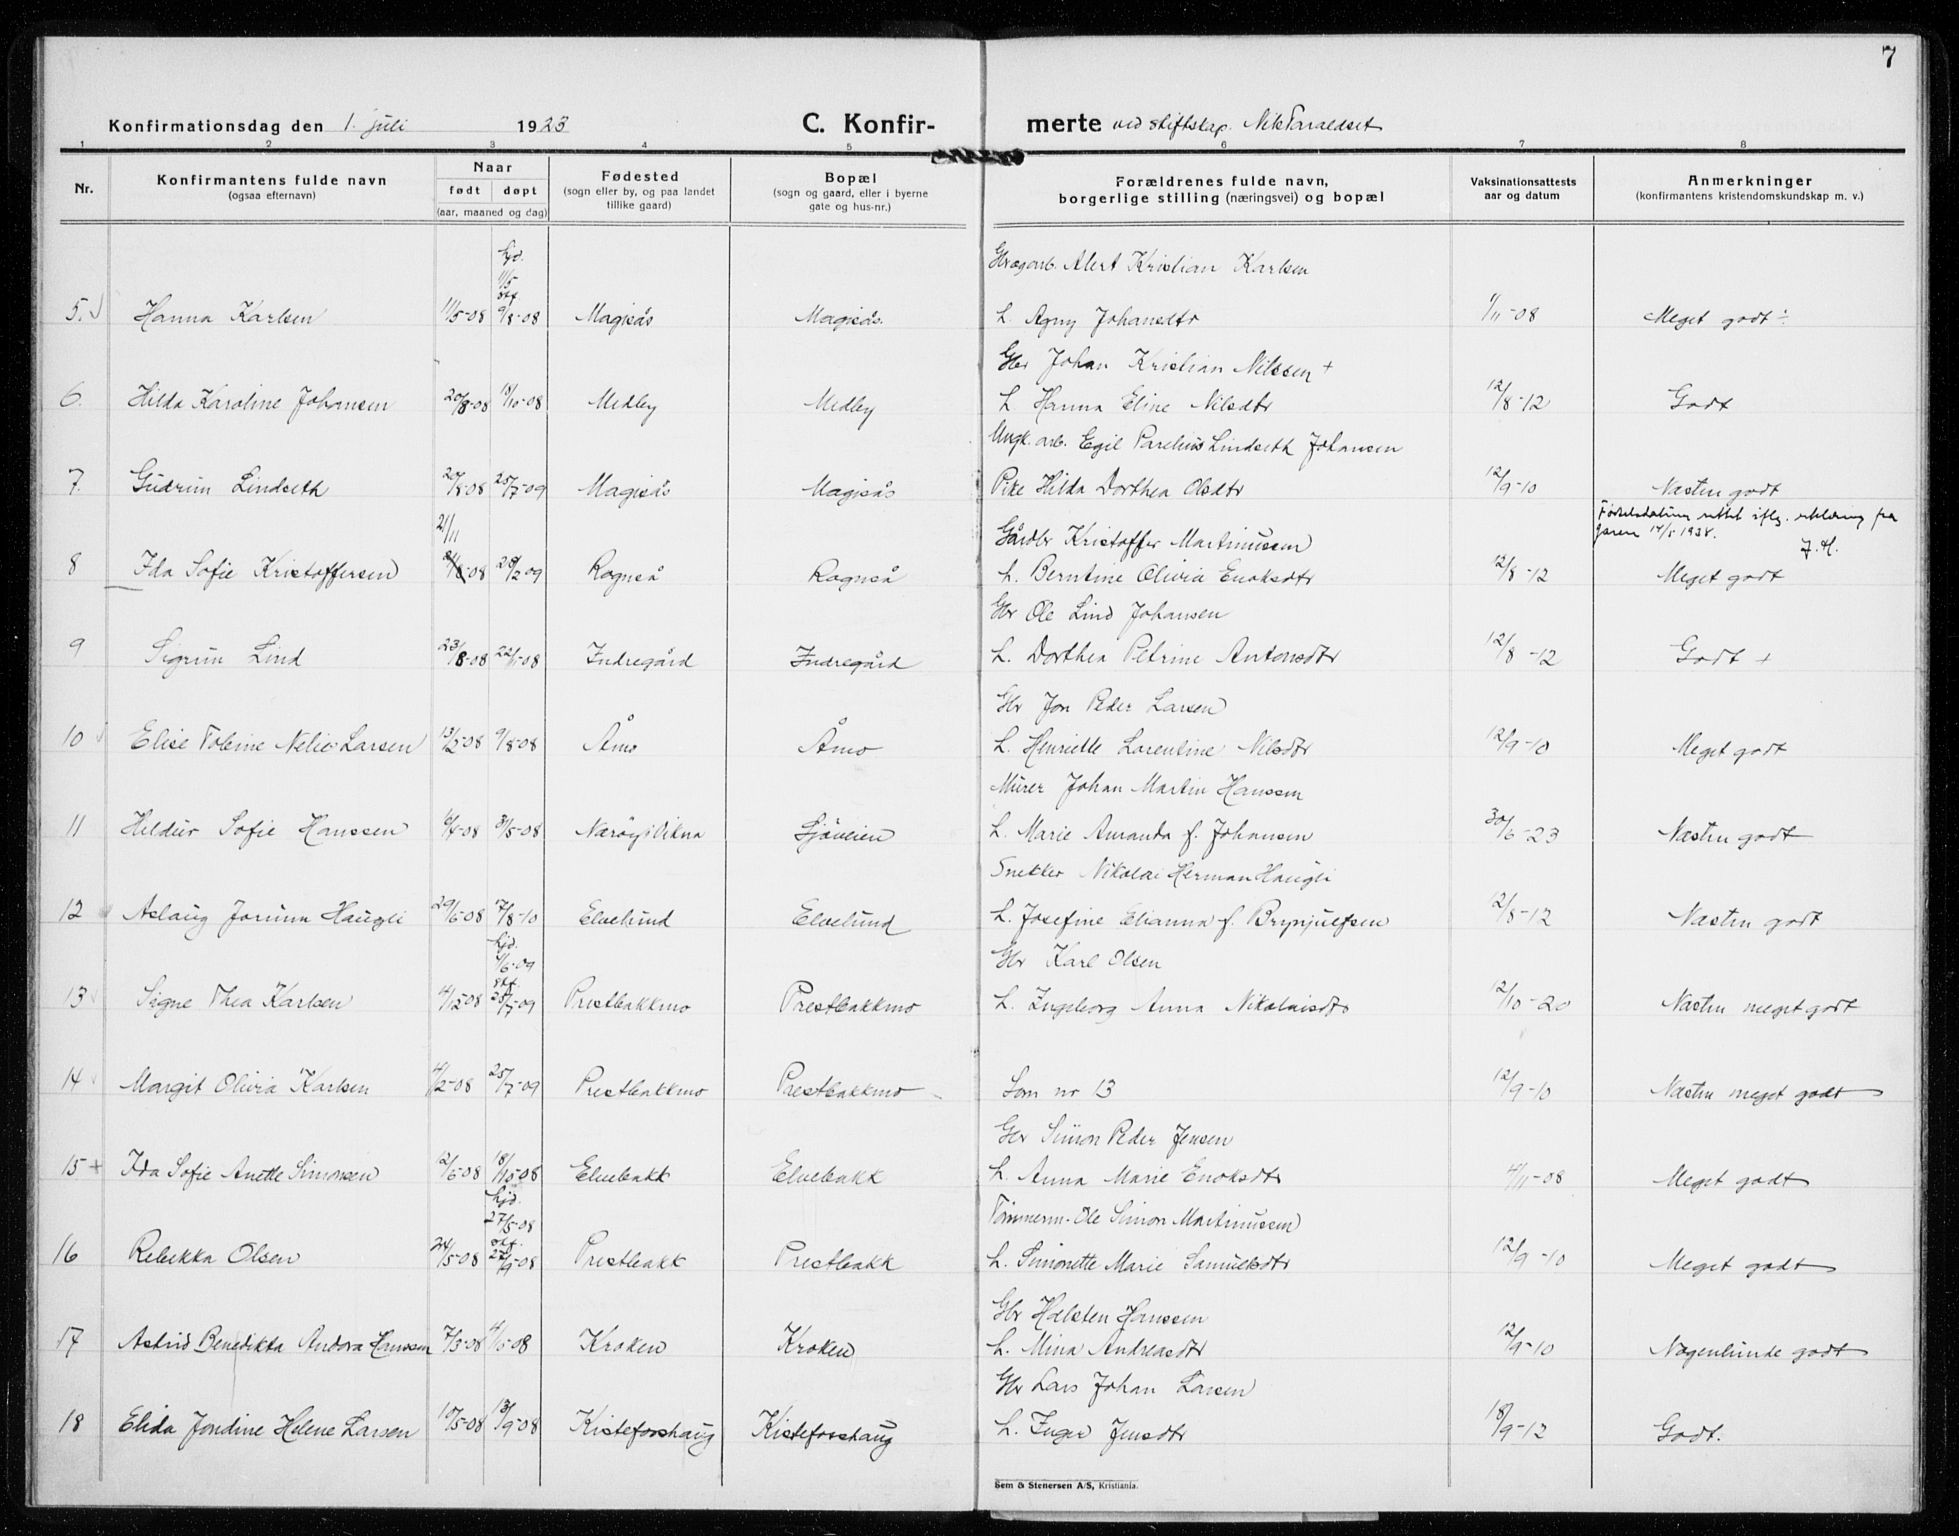 7
Konfirmationsdag den 1. juli 1923 C. Konfir- merte ved stiftskap. Nik Taraldset
1 2 3 4 5 6 7 8
Nr. Konfirmantens fulde navn (ogsaa efternavn) Naar født døpt (aar, maaned og dag) Fødested (sogn eller by, og paa landet tillike gaard) Bopæl (sogn og gaard, eller i byerne gate og hus-nr.) Forældrenes fulde navn, borgerlige stilling (næringsvei) og bopæl Vaksinationsattests aar og datum Anmerkninger (konfirmantens kristendomskundskap m. v.)
hjd. 11/5 stf. Alert Kristian Karlsen
5. Hanna Karlsen 11/5-08 9/8-08 Magisås Magisås. L. Agny Johansdtr 1/11-08 Meget godt ÷
Gbr Johan Kristian Nilssen +
6. Hilda Karoline Johansen 20/8-08 18/10-08 Medby Medby L Hanna Eline Nilsdtr 12/8-12 Godt
Ungk. arb. Egil Parelius Lindseth Johansen
7. Gudrun Lindseth 20/8-08 25/7-09 Magisås Magisås Pike Hilda Dorthea Olsdtr 12/9-10 Næsten godt
21/11 Gårdbr Kristoffer Martinussen Fødselsdatum rettet iflg. erklæring fra 1938. J.H.
8 Ida Sofie Kristoffersen 08 28/2 09 Rognså Rognså L. Berntine Olivia Enoksdtr 12/8-12 Meget godt
Gbr Ole Lind Johansen
9 Sigrun Lind 23/8-08 22/11-08 Indregård Indregård L. Dorthea Petrine Antonsdtr 12/8-12 Godt +
Gbr Jon Peder Larsen
10 Elise Tobine Nelie Larsen 13/5-08 9/8-08 Åmo Åmo L. Henriette Larentine Nilsdtr 12/9-10 Meget godt
Murer Johan Martin Hanssen
11 Hildur Sofie Hanssen 6/4-08 31/5-08 Nærøy i Vikna Sjøveien L. Marie Amanda f. Johansen 30/6-23 Næsten godt
Snekker Nikolai Herman Haugli
12 Aslaug Jorunn Haugli 29/6-08 7/8-10 Elvelund Elvelund L. Josefine Elianna f. Brynjulfsen 12/8-12 Næsten godt
hjd. 1/6-09 stf. Gbr Karl Olsen
13 Signe Thea Karlsen 4/12-08 25/7-09 Prestbakkmo Prestbakkmo L. Ingeborg Anna Nikolaisdtr 12/10-20 Næsten meget godt
14 Margit Olivia Karlsen 4/12-08 25/7-09 Prestbakkmo Prestbakkmo Som nr 13 12/9-10 Næsten meget godt
Gbr Simon Peder Jensen
15 + Ida Sofie Anette Simonsen 12/6-08 18/10-08 Elvebakk Elvebakk L. Anna Marie Enoksdtr 4/11-08 Meget godt
hjd. 27/5-08 stf. Tømmerm. Ole Simon Martinussen
16 Rebekka Olsen 24/5-08 27/9-08 Prestbakk Prestbakk L. Simonette Marie Samuelsdtr 12/9-10 Meget godt
Gbr Halsten Hanssen
17 Astrid Benedikta Andora Hanssen 7/3-08 4/5-08 Kroken Kroken L. Mina Andreasdtr 12/9-10 Nogenlunde godt
Gbr Lars Johan Larsen
18 Elida Jondine Helene Larsen 19/5-08 13/9-08 Kisteforshaug Kisteforshaug L. Inger Jensdtr 18/9-12 Godt.
Sem & Stenersen A/S, Kristiania.